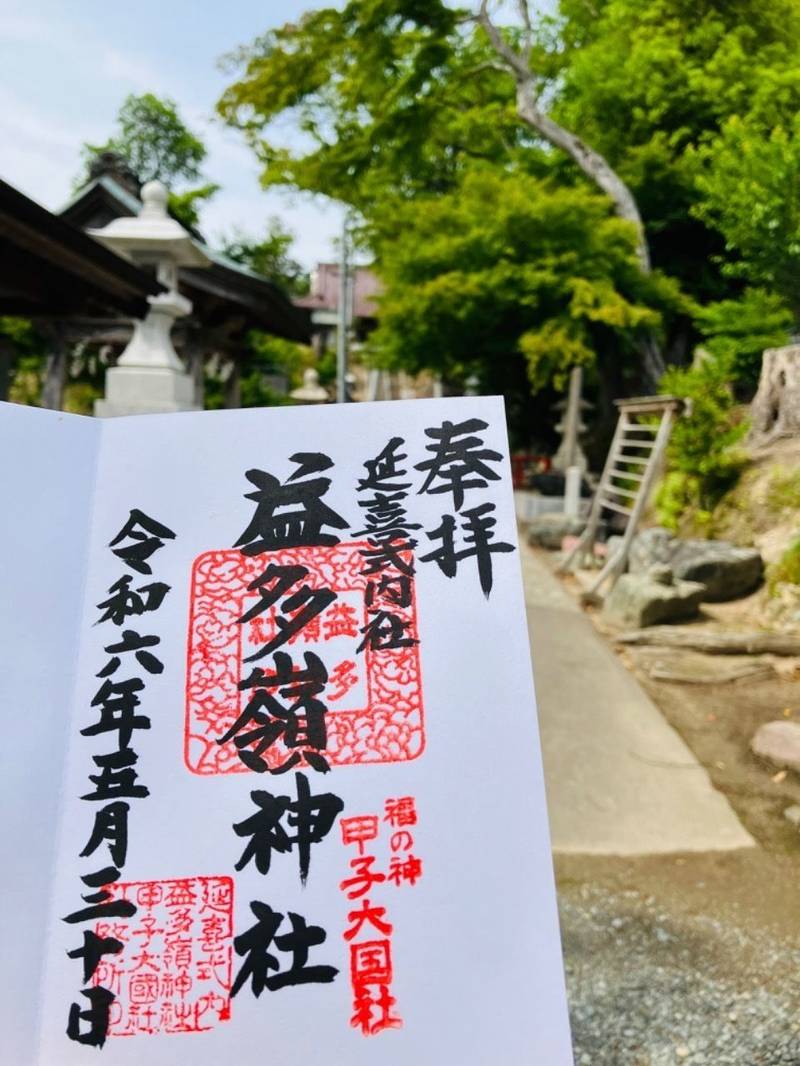 奉拝
延喜式内社
益多嶺神社
益多
嶺
社
福の神
甲子大国社
令和六年五月三十日
延喜式内
益多嶺神社
甲子大國社